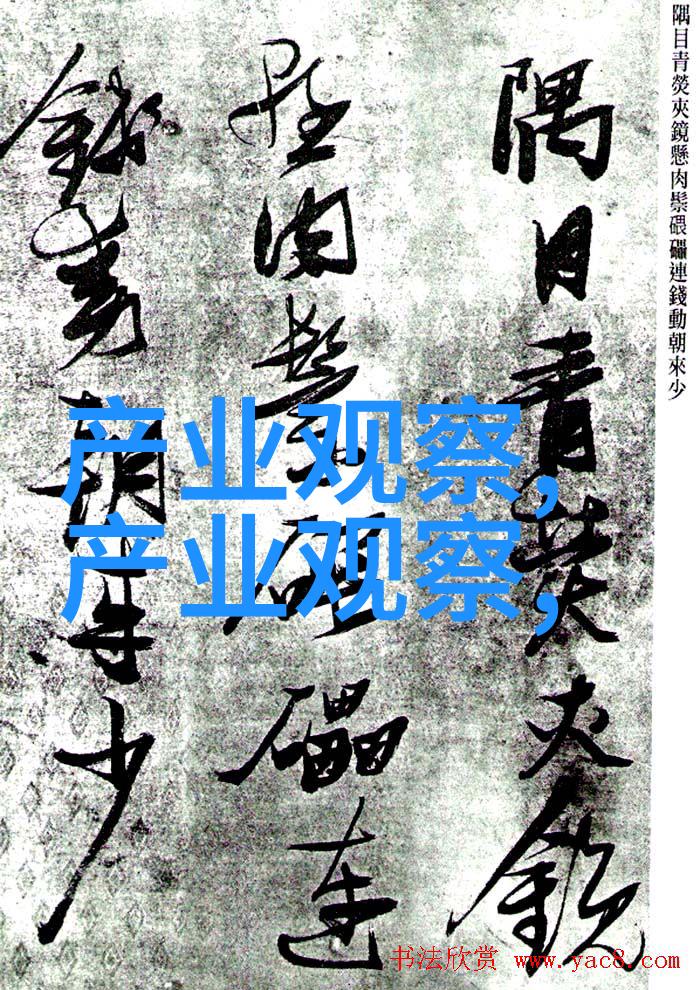 隅目青熒夾鏡懸肉鬃碨礧連錢動朝來少
隅目青熒夾鏡
懸肉鬃碨礧連
錢動朝來少
产业观察,
产业观察,
书法欣赏 www.yac8.com